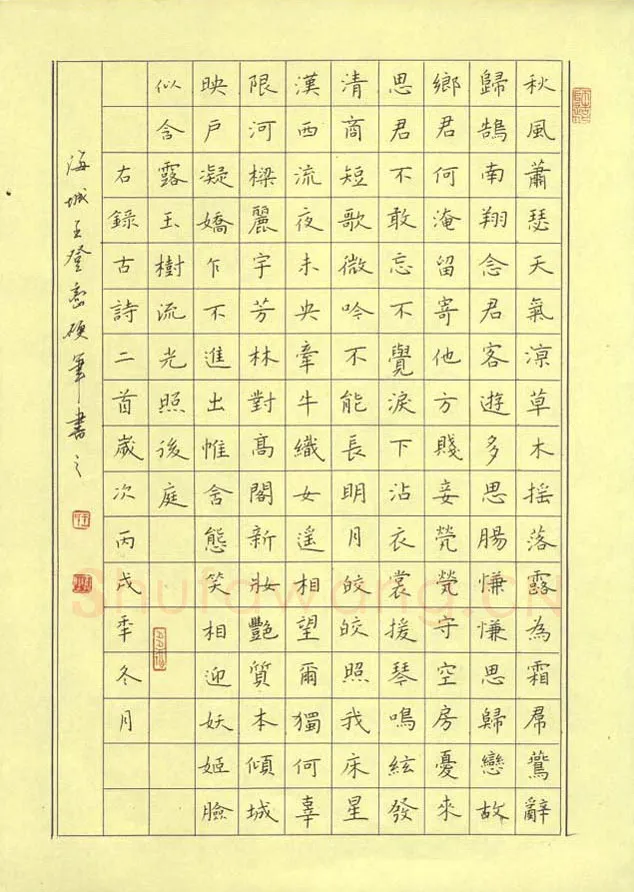 秋風蕭瑟天氣涼草木摇落露為霜羣鷰辭
歸鵠南翔念君客遊多思腸慊慊思歸戀故
鄉君何淹留寄他方賤妾煢煢守空房憂來
思君不敢忘不覺淚下沾衣裳援琴鳴絃發
清商短歌微吟不能長明月皎皎照我床星
漢西流夜未央牽牛織女遥相望爾獨何辜
限河樑麗宇芳林對高閣新妝艷質本傾城
映户凝嬌乍不進出帷含態笑相迎妖姬臉
似含露玉樹流光照後庭
右錄古詩二首歲次丙戌秊冬月
海城王登硬筆書之
Shufawang.CN